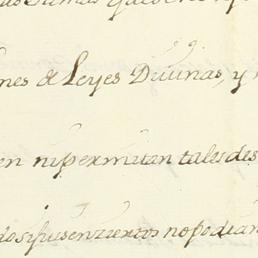 nes de Leyes Diuinas, y
en nipermitan tales des
dosipusenziertos nopodian